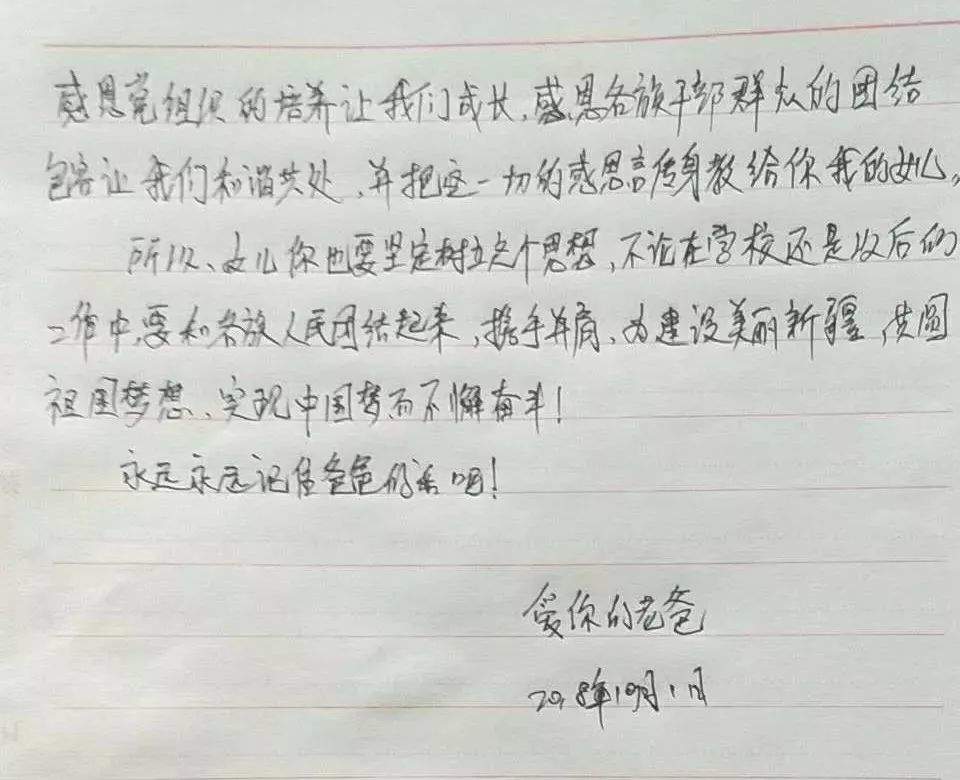 感恩党组织的培养让我们成长,感恩各族干部群众的团结
包容让我们和谐共处,并把这一切的感恩言传身教给你我的女儿。
所以、女儿你也要坚定树立这个思想,不论在学校还是以后的
工作中,要和各族人民团结起来,携手并肩、为建设美丽新疆,共圆
祖国梦想、实现中国梦而不懈奋斗!
永远永远记住爸爸的话吧!
爱你的老爸
2018年10月1日